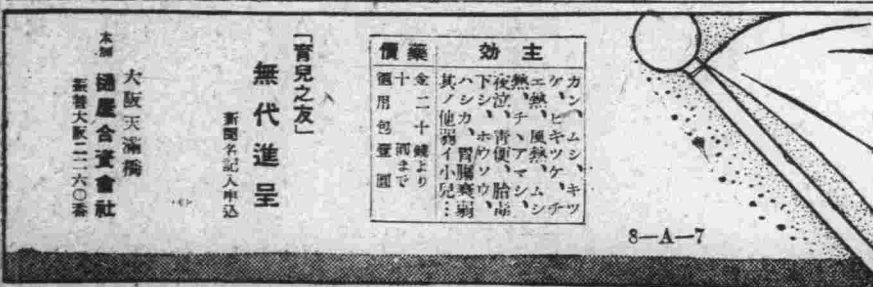 主効
カン、ムシ、キツ
ケ、ヒキツケ、チ
エ熱、風熱、ムシ
熱、チヽアマシ、
夜泣、青便、胎毒
下シ、ホウソウ、
ハシカ、胃腸衰弱
其ノ他弱イ小兒…
藥價
金二十錢より
十圓まで
徳用包壹圓
「育兒之友」
無代進呈
新聞名記入申込
大阪天滿橋
本舗 樋屋合資會社
振替大阪二二六〇番
8—A—7